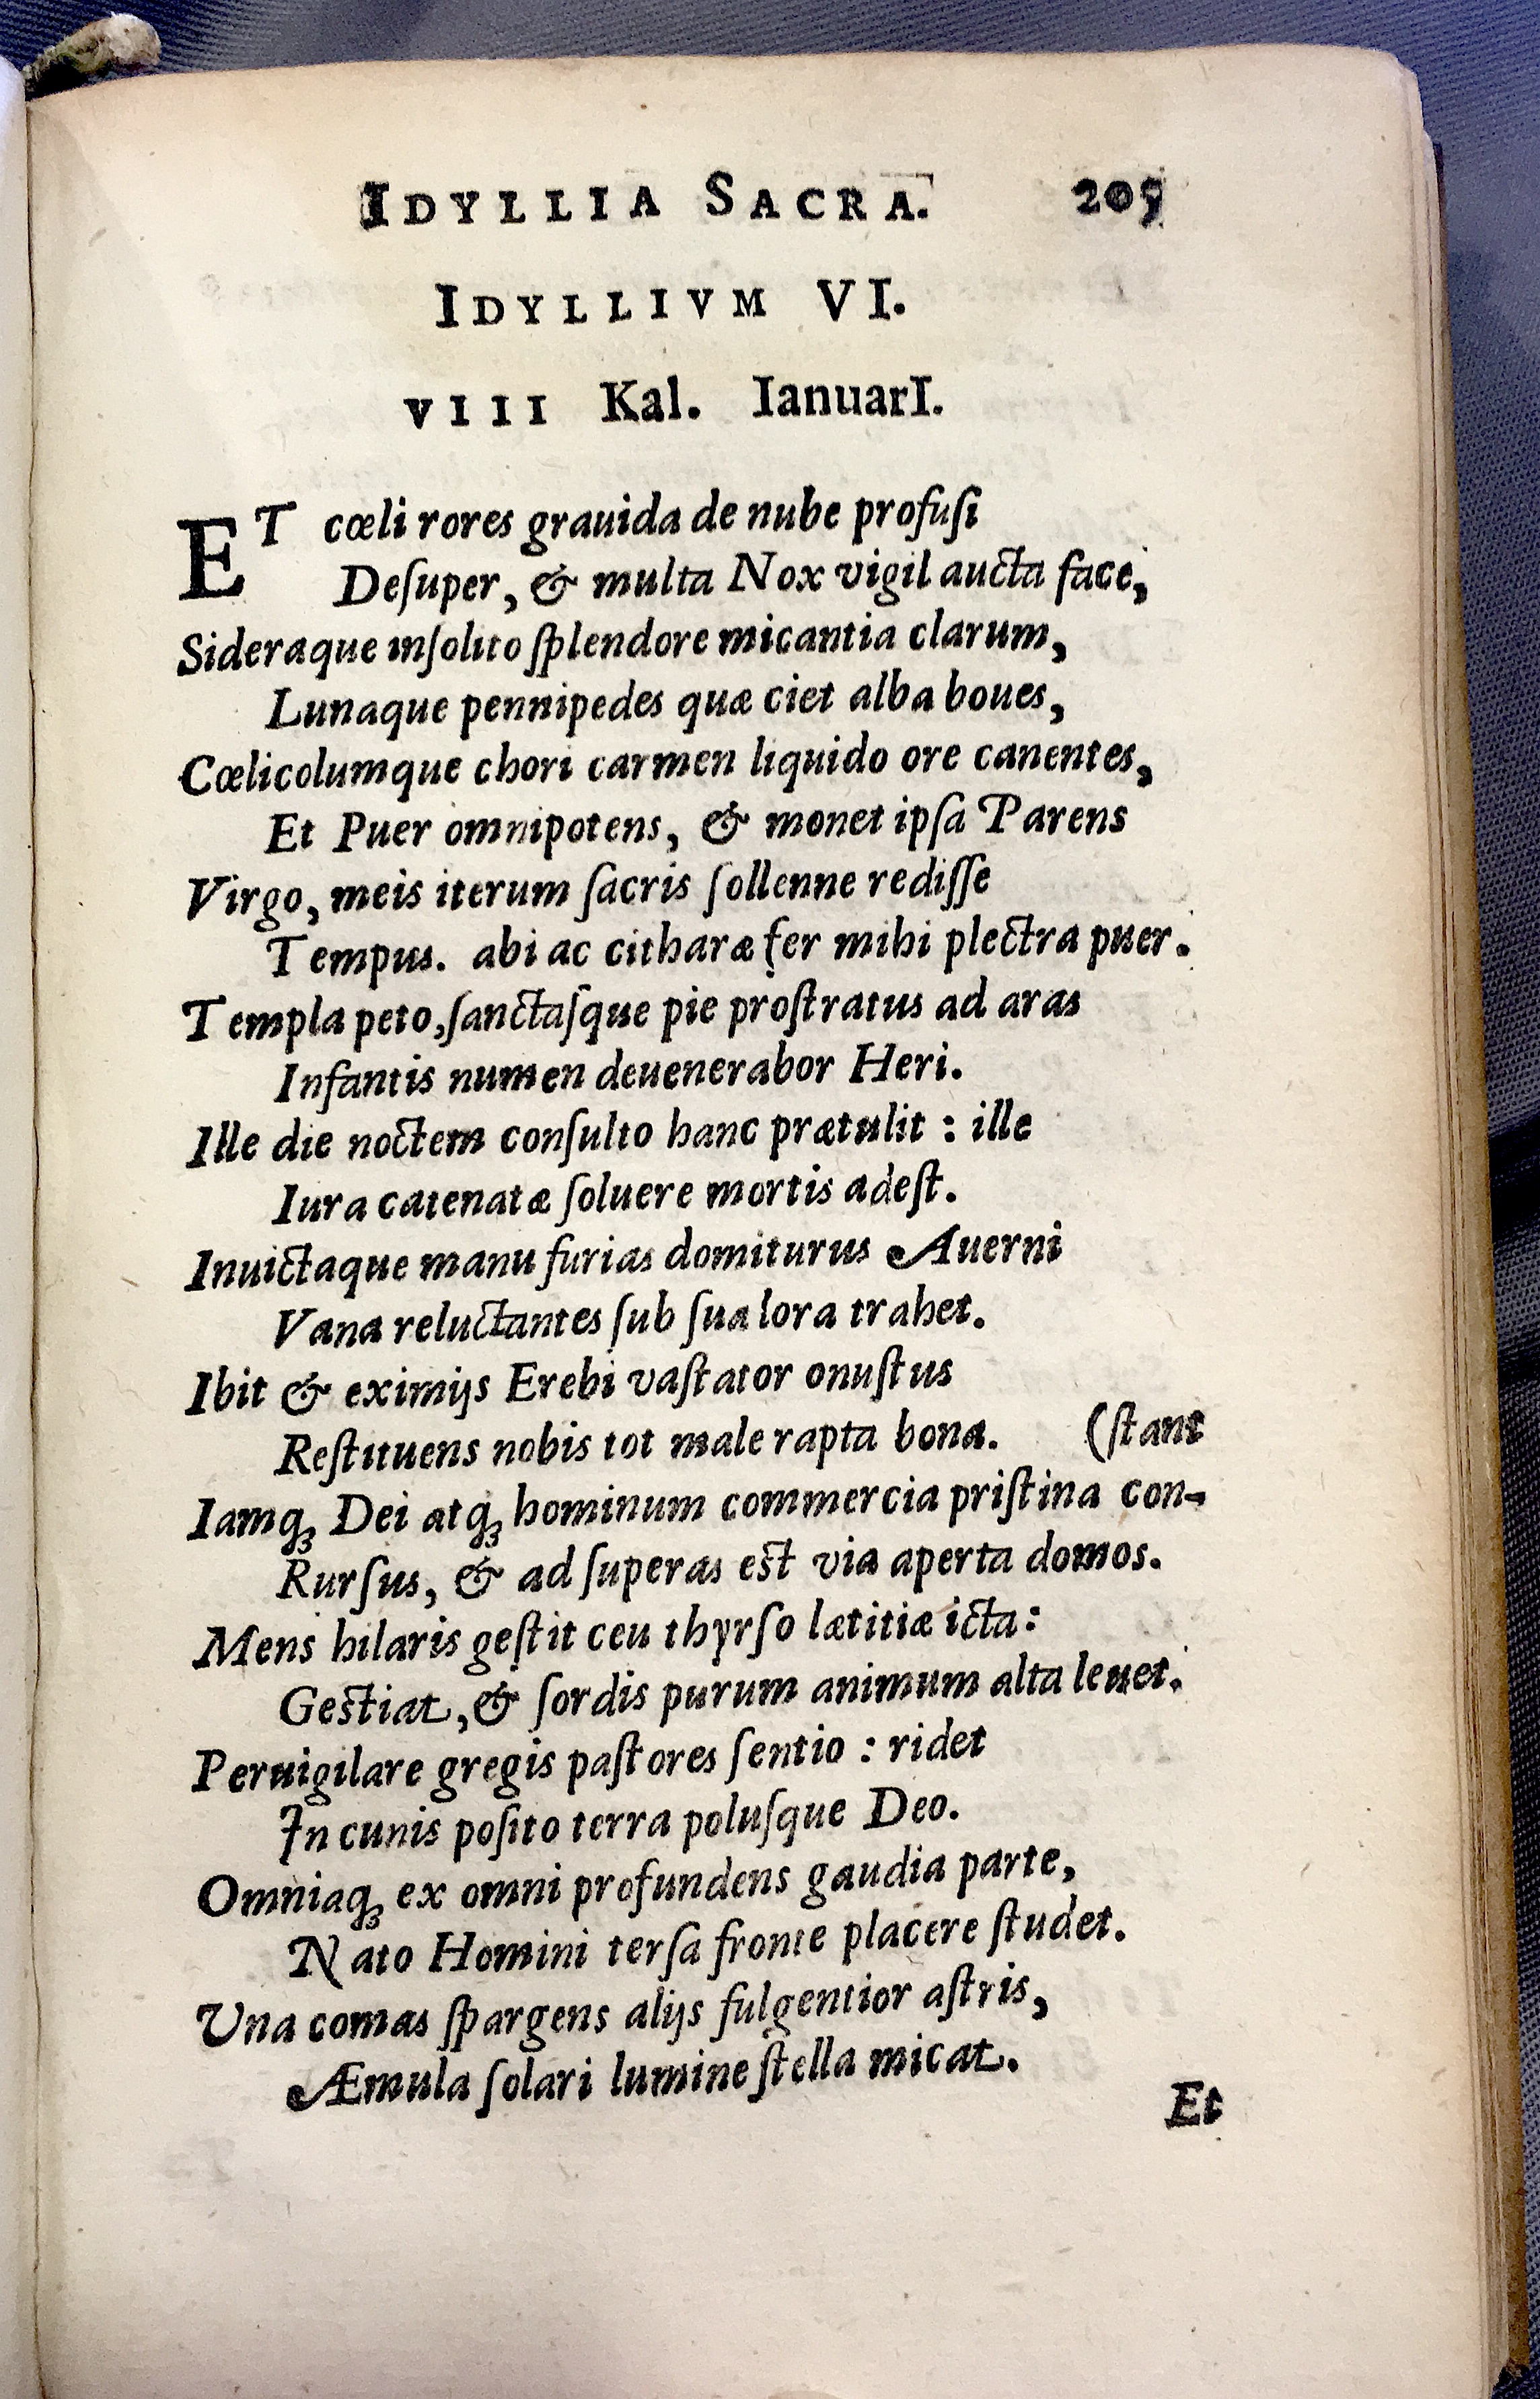 IDYLLIA SACRA. 205
IDYLLIVM VI.
VIII Kal. IanuarI.
ET cœli rores grauida de nube profuſi
Deſuper, & multa Nox vigil aucta face,
Sideraque inſolito ſplendore micantia clarum,
Lunaque pennipedes quæ ciet alba boues,
Cœlicolumque chori carmen liquido ore canentes,
Et Puer omnipotens, & monet ipſa Parens
Virgo, meis iterum ſacris ſollenne rediſſe
Tempus. abi ac citharæ fer mihi plectra puer.
Templa peto, ſanctaſque pie proſtratus ad aras
Infantis numen deuenerabor Heri.
Ille die noctem conſulto hanc prætulit : ille
Iura catenatæ ſoluere mortis adeſt.
Inuictaque manu furias domiturus Auerni
Vana reluctantes ſub ſua lora trahet.
Ibit & eximijs Erebi vaſtator onuſtus
Reſtituens nobis tot male rapta bona. (ſtant
Iamq; Dei atq; hominum commercia priſtina con-
Rurſus, & ad ſuperas est via aperta domos.
Mens hilaris geſtit ceu thyrſo lætitiæ icta:
Gestiat, & ſordis purum animum alta leuet.
Peruigilare gregis paſtores ſentio : ridet
In cunis poſito terra poluſque Deo.
Omniaq; ex omni profundens gaudia parte,
Nato Homini terſa fronte placere ſtudet.
Vna comas ſpargens alijs fulgentior aſtris,
Æmula ſolari lumine ſtella micat.
Et